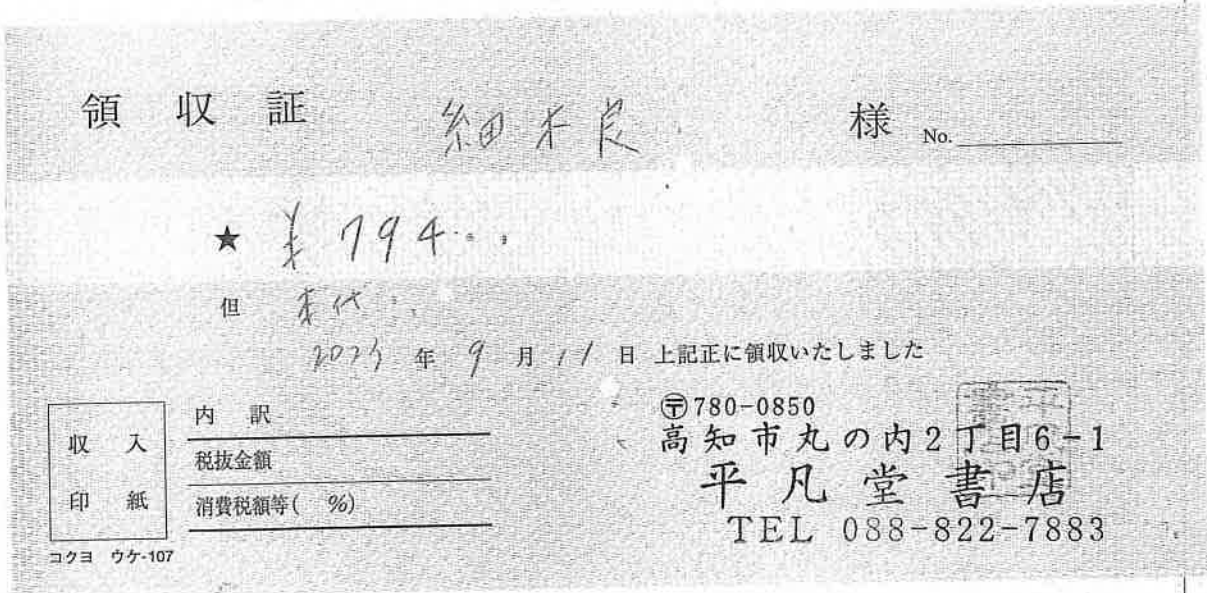 領収証 細木良 様 No.
★ ¥794
但 本代
2023年9月11日 上記正に領収いたしました
収入
印紙
内訳
税抜金額
消費税額等( %)
コクヨ ウケ-107
〒780-0850
高知市丸の内2丁目6-1
平凡堂書店
TEL 088-822-7883